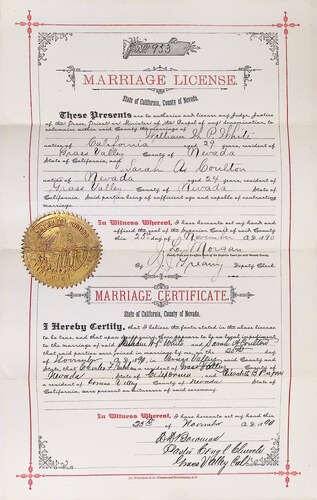 No. 933
MARRIAGE LICENSE.
State of California, County of Nevada.
These Presents are to authorize and license any Judge, Justice
of the Peace, Priest or Minister of the Gospel of any denomination, to
solemnize within said County the marriage of
William G. P. White
native of California aged 29 years, resident of
Grass Valley County of Nevada
State of California, and
Sarah A. Coulton
native of Nevada aged 24 years, resident of
Grass Valley County of Nevada State of
California. Said parties being of sufficient age and capable of contracting
marriage.
In Witness Whereof, I have hereunto set my hand and
affixed the seal of the Superior Court of said County
this 25th day of November A.D. 1890
J. L. Morgan
Deputy Clerk.
MARRIAGE CERTIFICATE.
State of California, County of Nevada.
I Hereby Certify, that I believe the facts stated in the above license
to be true, and that upon due inquiry there appears to be no legal impediment
to the marriage of said William G. P. White and Sarah A. Coulton
that said parties were joined in marriage by me on the 25th day
of November A.D. 1890, in Grass Valley said County and
State; that Charles F. a resident of Grass Valley
Nevada State of California and
a resident of Grass Valley County of Nevada State of
California, were present as witnesses of said ceremony.
In Witness Whereof, I have hereunto set my hand this
25th day of November A.D. 1890
Pastor Cong'l Church
Grass Valley Cal